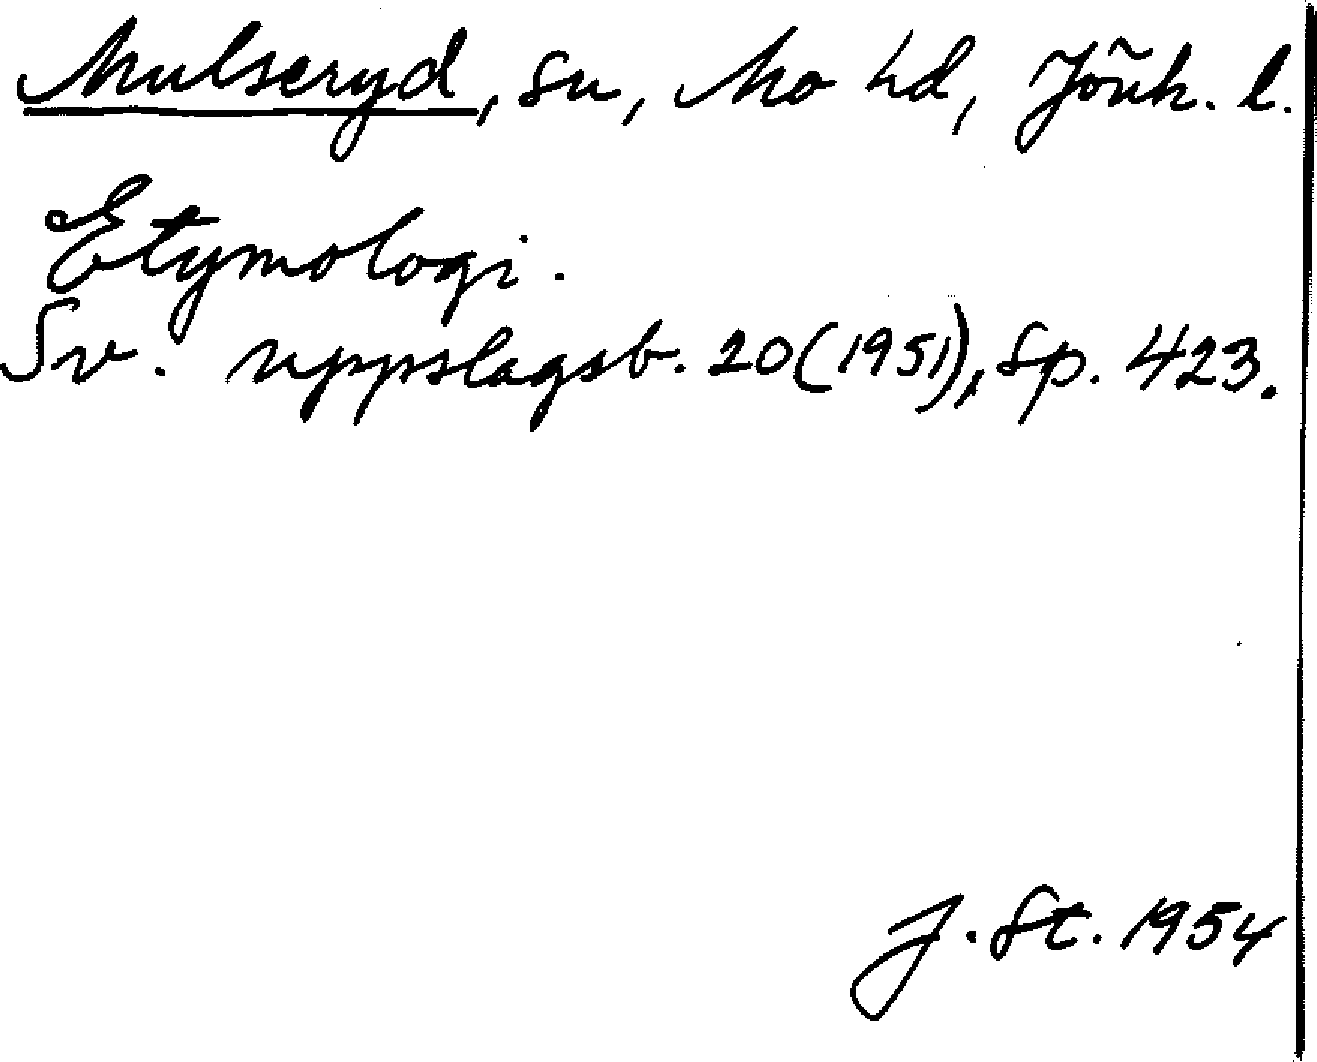 Mulseryd, sn, Mo hd, Jönk. l.
Etymologi.
Sv. uppslagsb. 20 (1951), sp. 423.
J. St. 1954